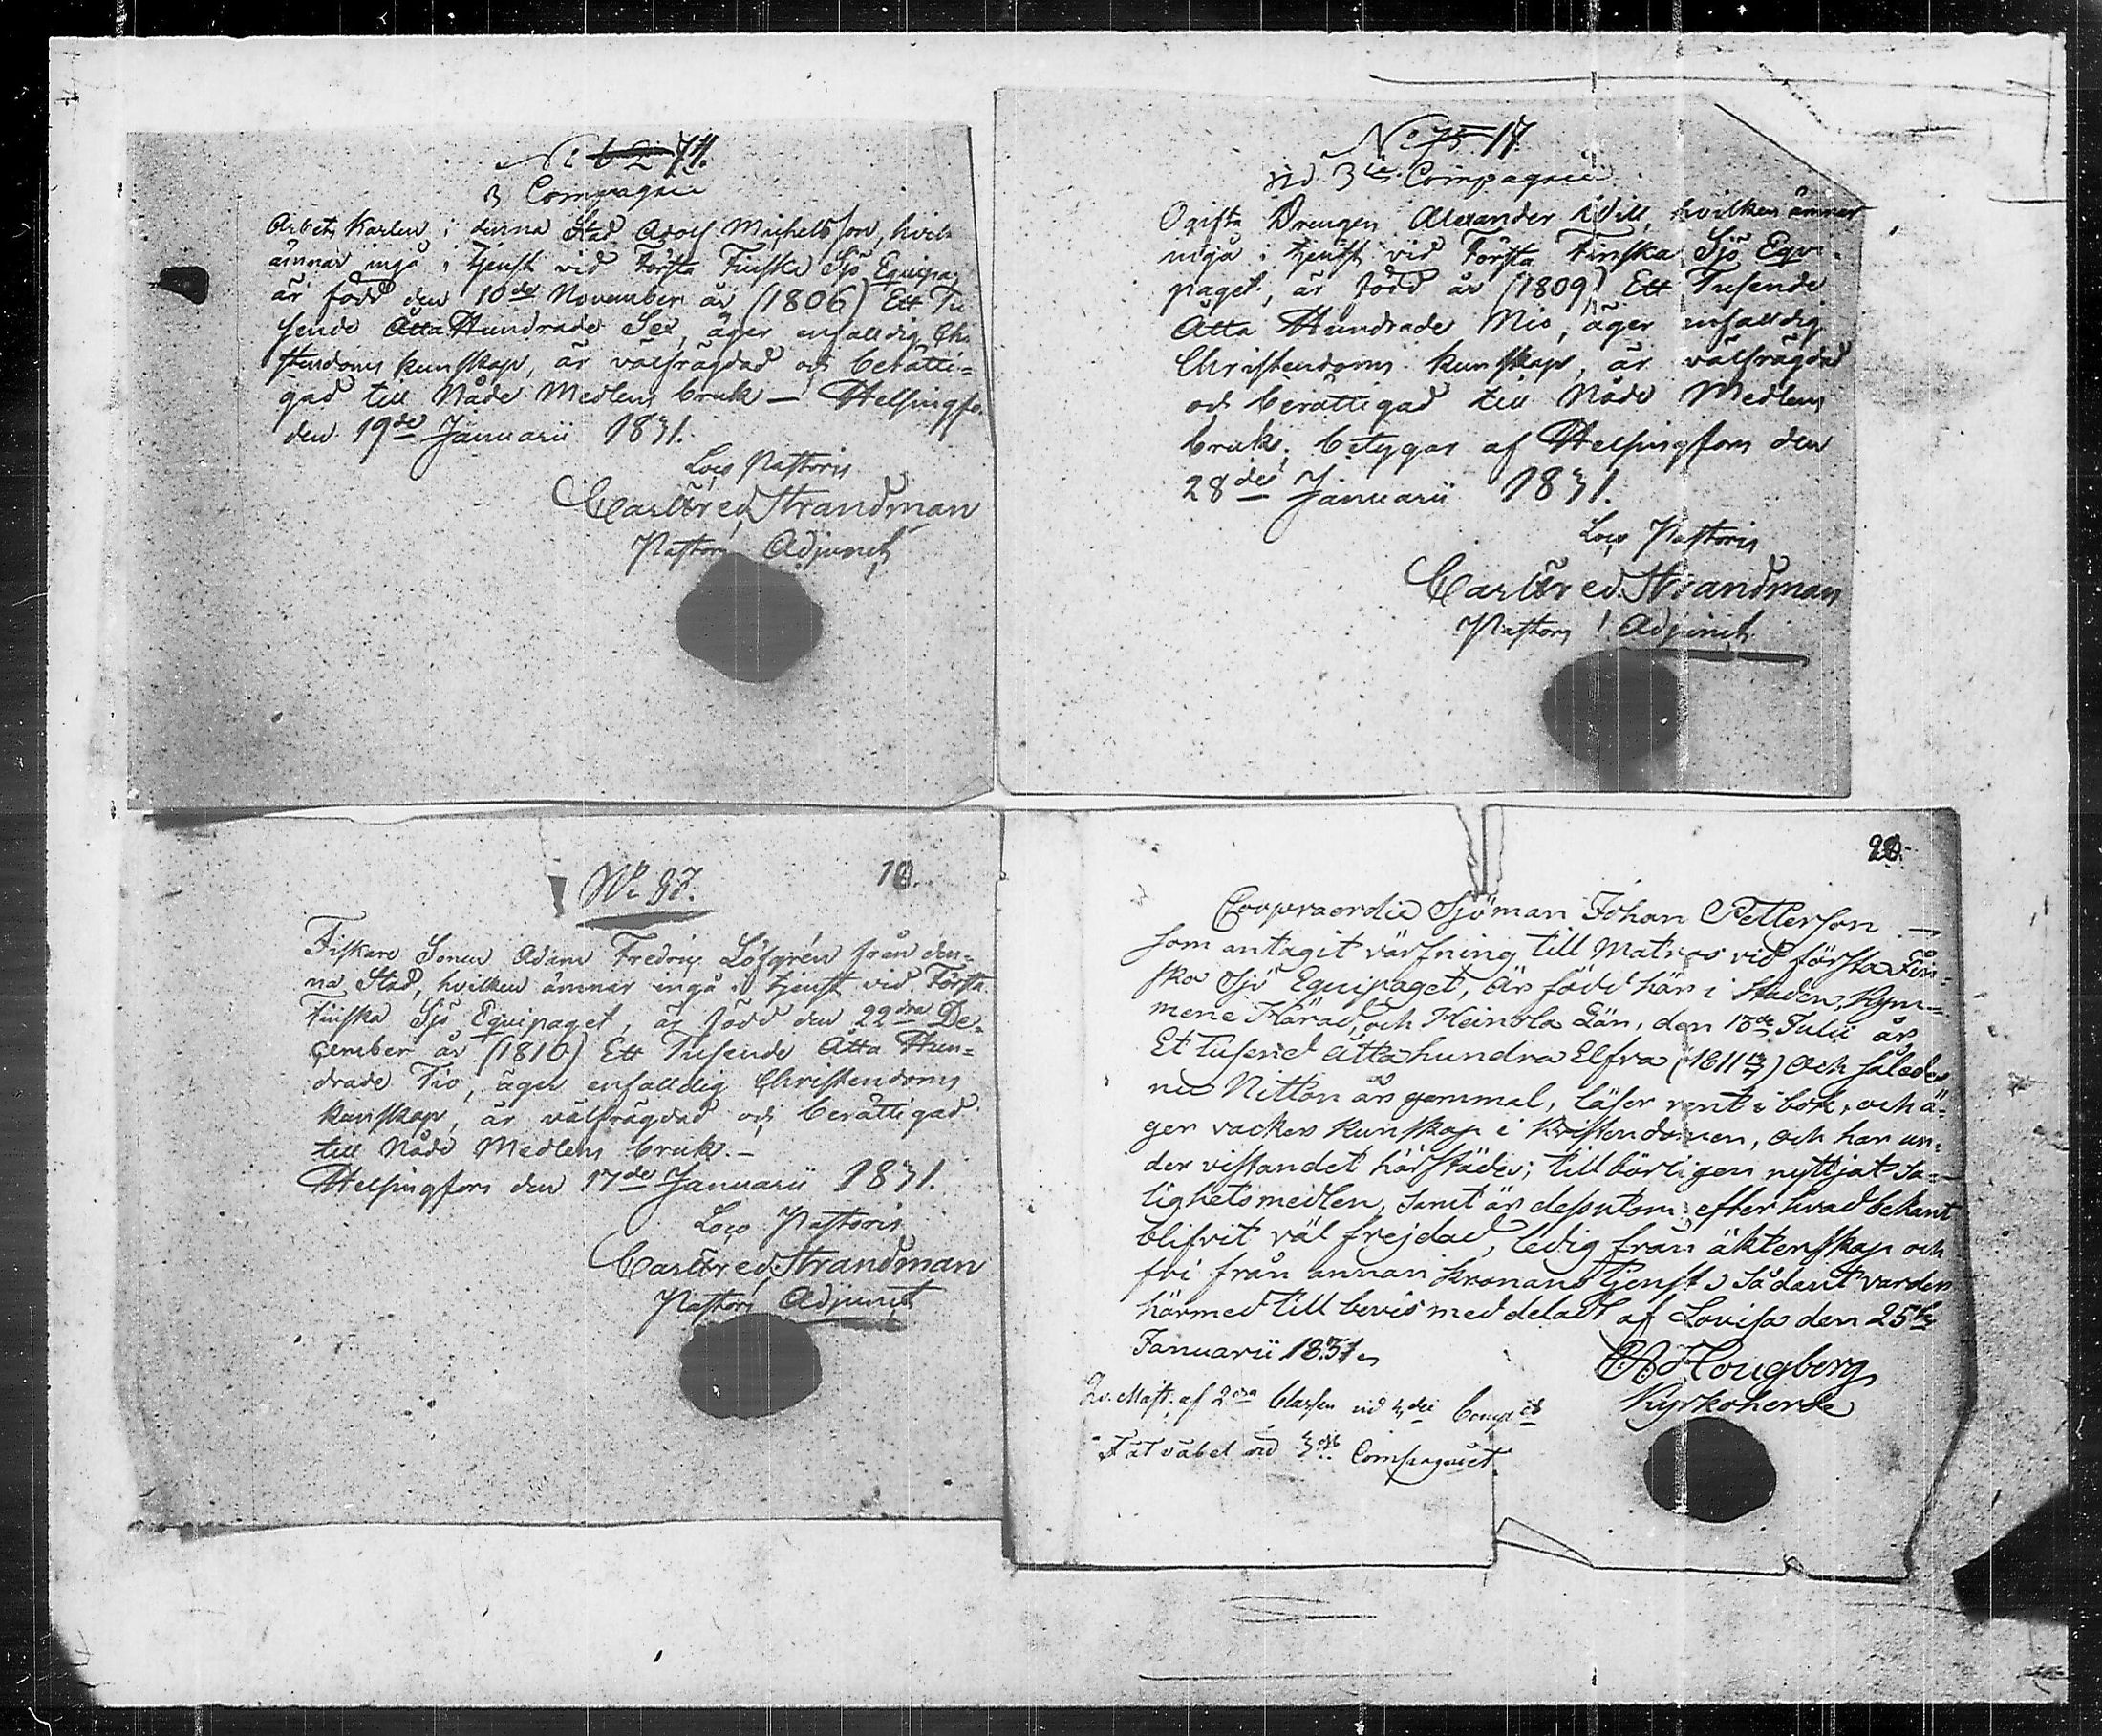 No 62 74.
3 Compagnie
Arbets Karlen i denna Stad Adolf Michelsson, hvil-
ämnar ingå i tjenst vid Första Finska Sjö Equipa,
är född den 10de November år (1806) Ett Tu
sende Åtta Hundrade Sex, äger enfalldig Chri
stendoms kunskap, är välfrägdad och berätti=
gad till Nåde Medlens bruk — Helsingfo
den 19de Januarii 1831.
Loco Pastoris
Carl Fred Strandman
Pastors Adjunct
No 75 17.
vid 3die Compagnie
Ogifta Drengen Alexander Will, hvilken ämnar
ingå i tjenst vid Första Finska Sjö Equi-
paget, är född år (1809) Ett Tusende
Åtta Hundrade Nio, äger enfalldig
Christendoms kunskap, är välfrägdad
och berättigad till Nåde Medlens
bruk, betygar af Helsingfors den
28de Januarii 1831.
Loco Pastoris
Carl Fred Strandman
Pastors Adjunct
No 97. 10.
Fiskare Sonen Adam Fredric Löfgrén från den=
na Stad, hvilken ämnar ingå i tjenst vid Första
Finska Sjö Equipaget, är född den 22dra De=
cember år (1810) Ett Tusende Åtta Hun=
drade Tio, äger enfalldig Christendoms
kunskap, är välfrägdad och berättigad
till Nåde Medlens bruk. —
Helsingfors den 17de Januarii 1831.
Loco Pastoris
Carl Fred Strandman
Pastors Adjunct
20.
Coopvaerdie Sjöman Johan Petterson —
som antagit värfning till Matros vid första Fin=
ska Sjö Equipaget, är född här i Staden, Kym=
mene Härad, och Heinola Län, den 18de Julii år
Et tusend åttahundra Elfva (1811) och således
nu Nitton år gammal, läser rent i bok, och ä=
ger vacker kunskap i Kristendomen, och har un=
der vistandet härstädes, tillbörligen nyttjat Sa=
lighetsmedlen, samt är dessutom efter hvad bekant
blifvit väl frejdad, ledig från äktenskap och
fri från annan Kronans tjenst; Sådant varder
härmed till bevis meddeladt af Lovisa den 25te
Januarii 1831.
Hougberg
Kyrkoherde
Qv. Mäst. af 2dra Classen vid Comp
Fältväbel vid 3dje Compagniet